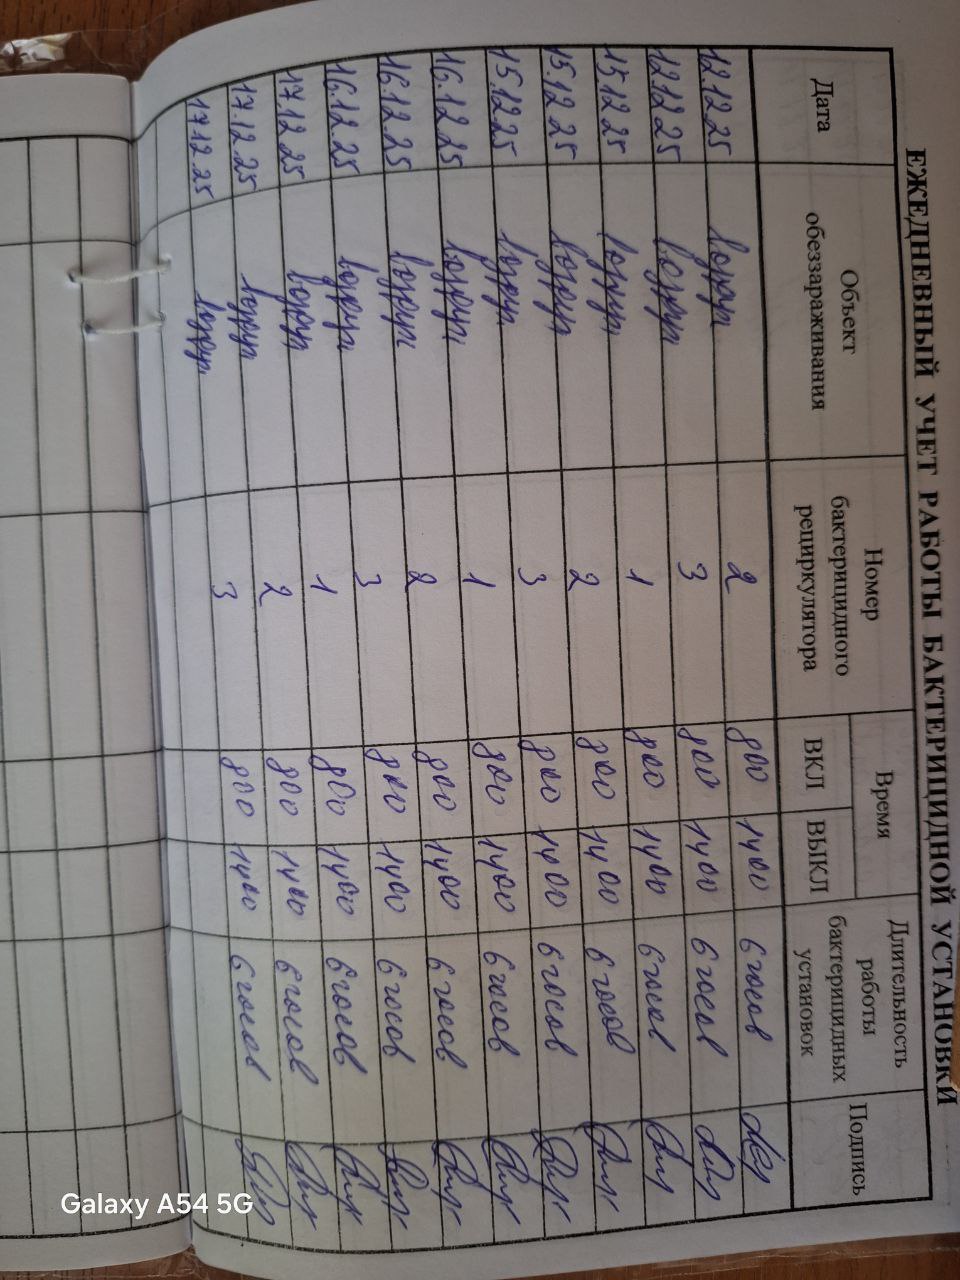 ЕЖЕДНЕВНЫЙ УЧЕТ РАБОТЫ БАКТЕРИЦИДНОЙ УСТАНОВКИ
Дата
Объект обеззараживания
Номер бактерицидного рециркулятора
Время
ВКЛ
ВЫКЛ
Длительность работы бактерицидных установок
Подпись
12.12.25 2 800 1400 6 часов
12.12.25 3 800 1400 6 часов
15.12.25 1 800 1400 6 часов
15.12.25 2 800 1400 6 часов
15.12.25 3 800 1400 6 часов
16.12.25 1 800 1400 6 часов
16.12.25 2 800 1400 6 часов
16.12.25 3 800 1400 6 часов
17.12.25 1 800 1400 6 часов
17.12.25 2 800 1400 6 часов
17.12.25 3 800 1400 6 часов
Galaxy A54 5G